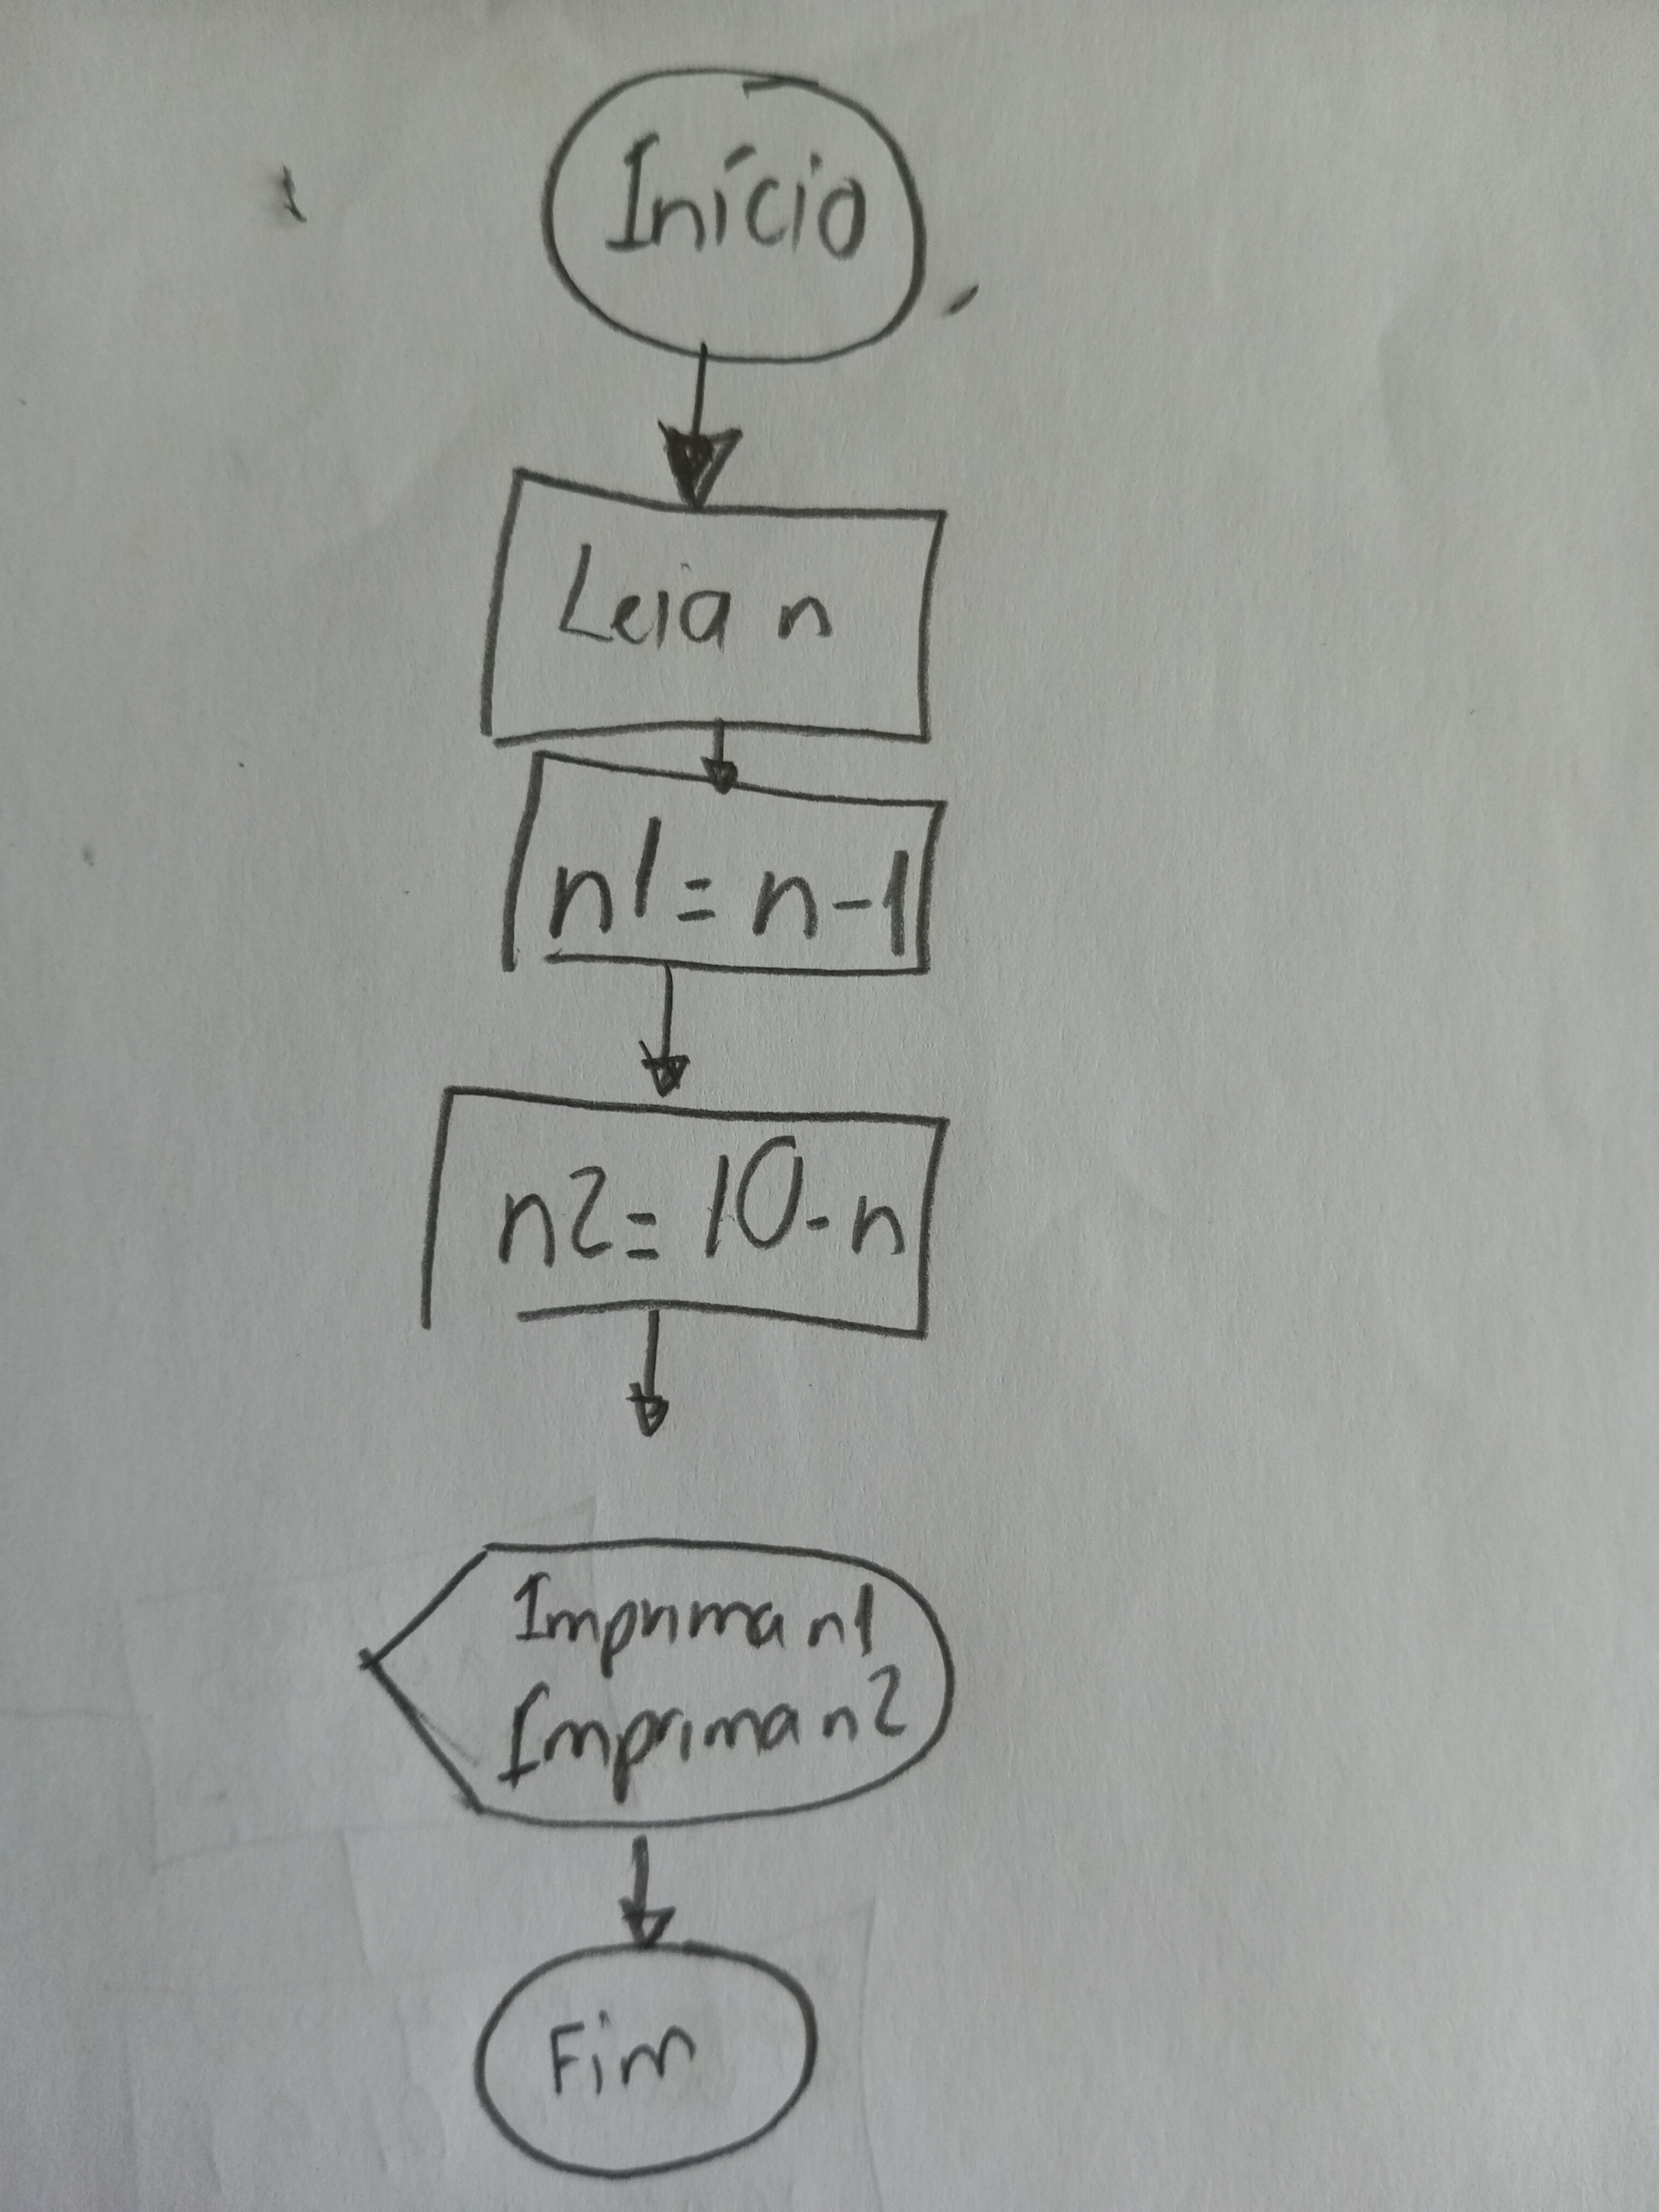 Início
Leia n
n1 = n-1
n2 = 10-n
Imprima n1
Imprima n2
Fim